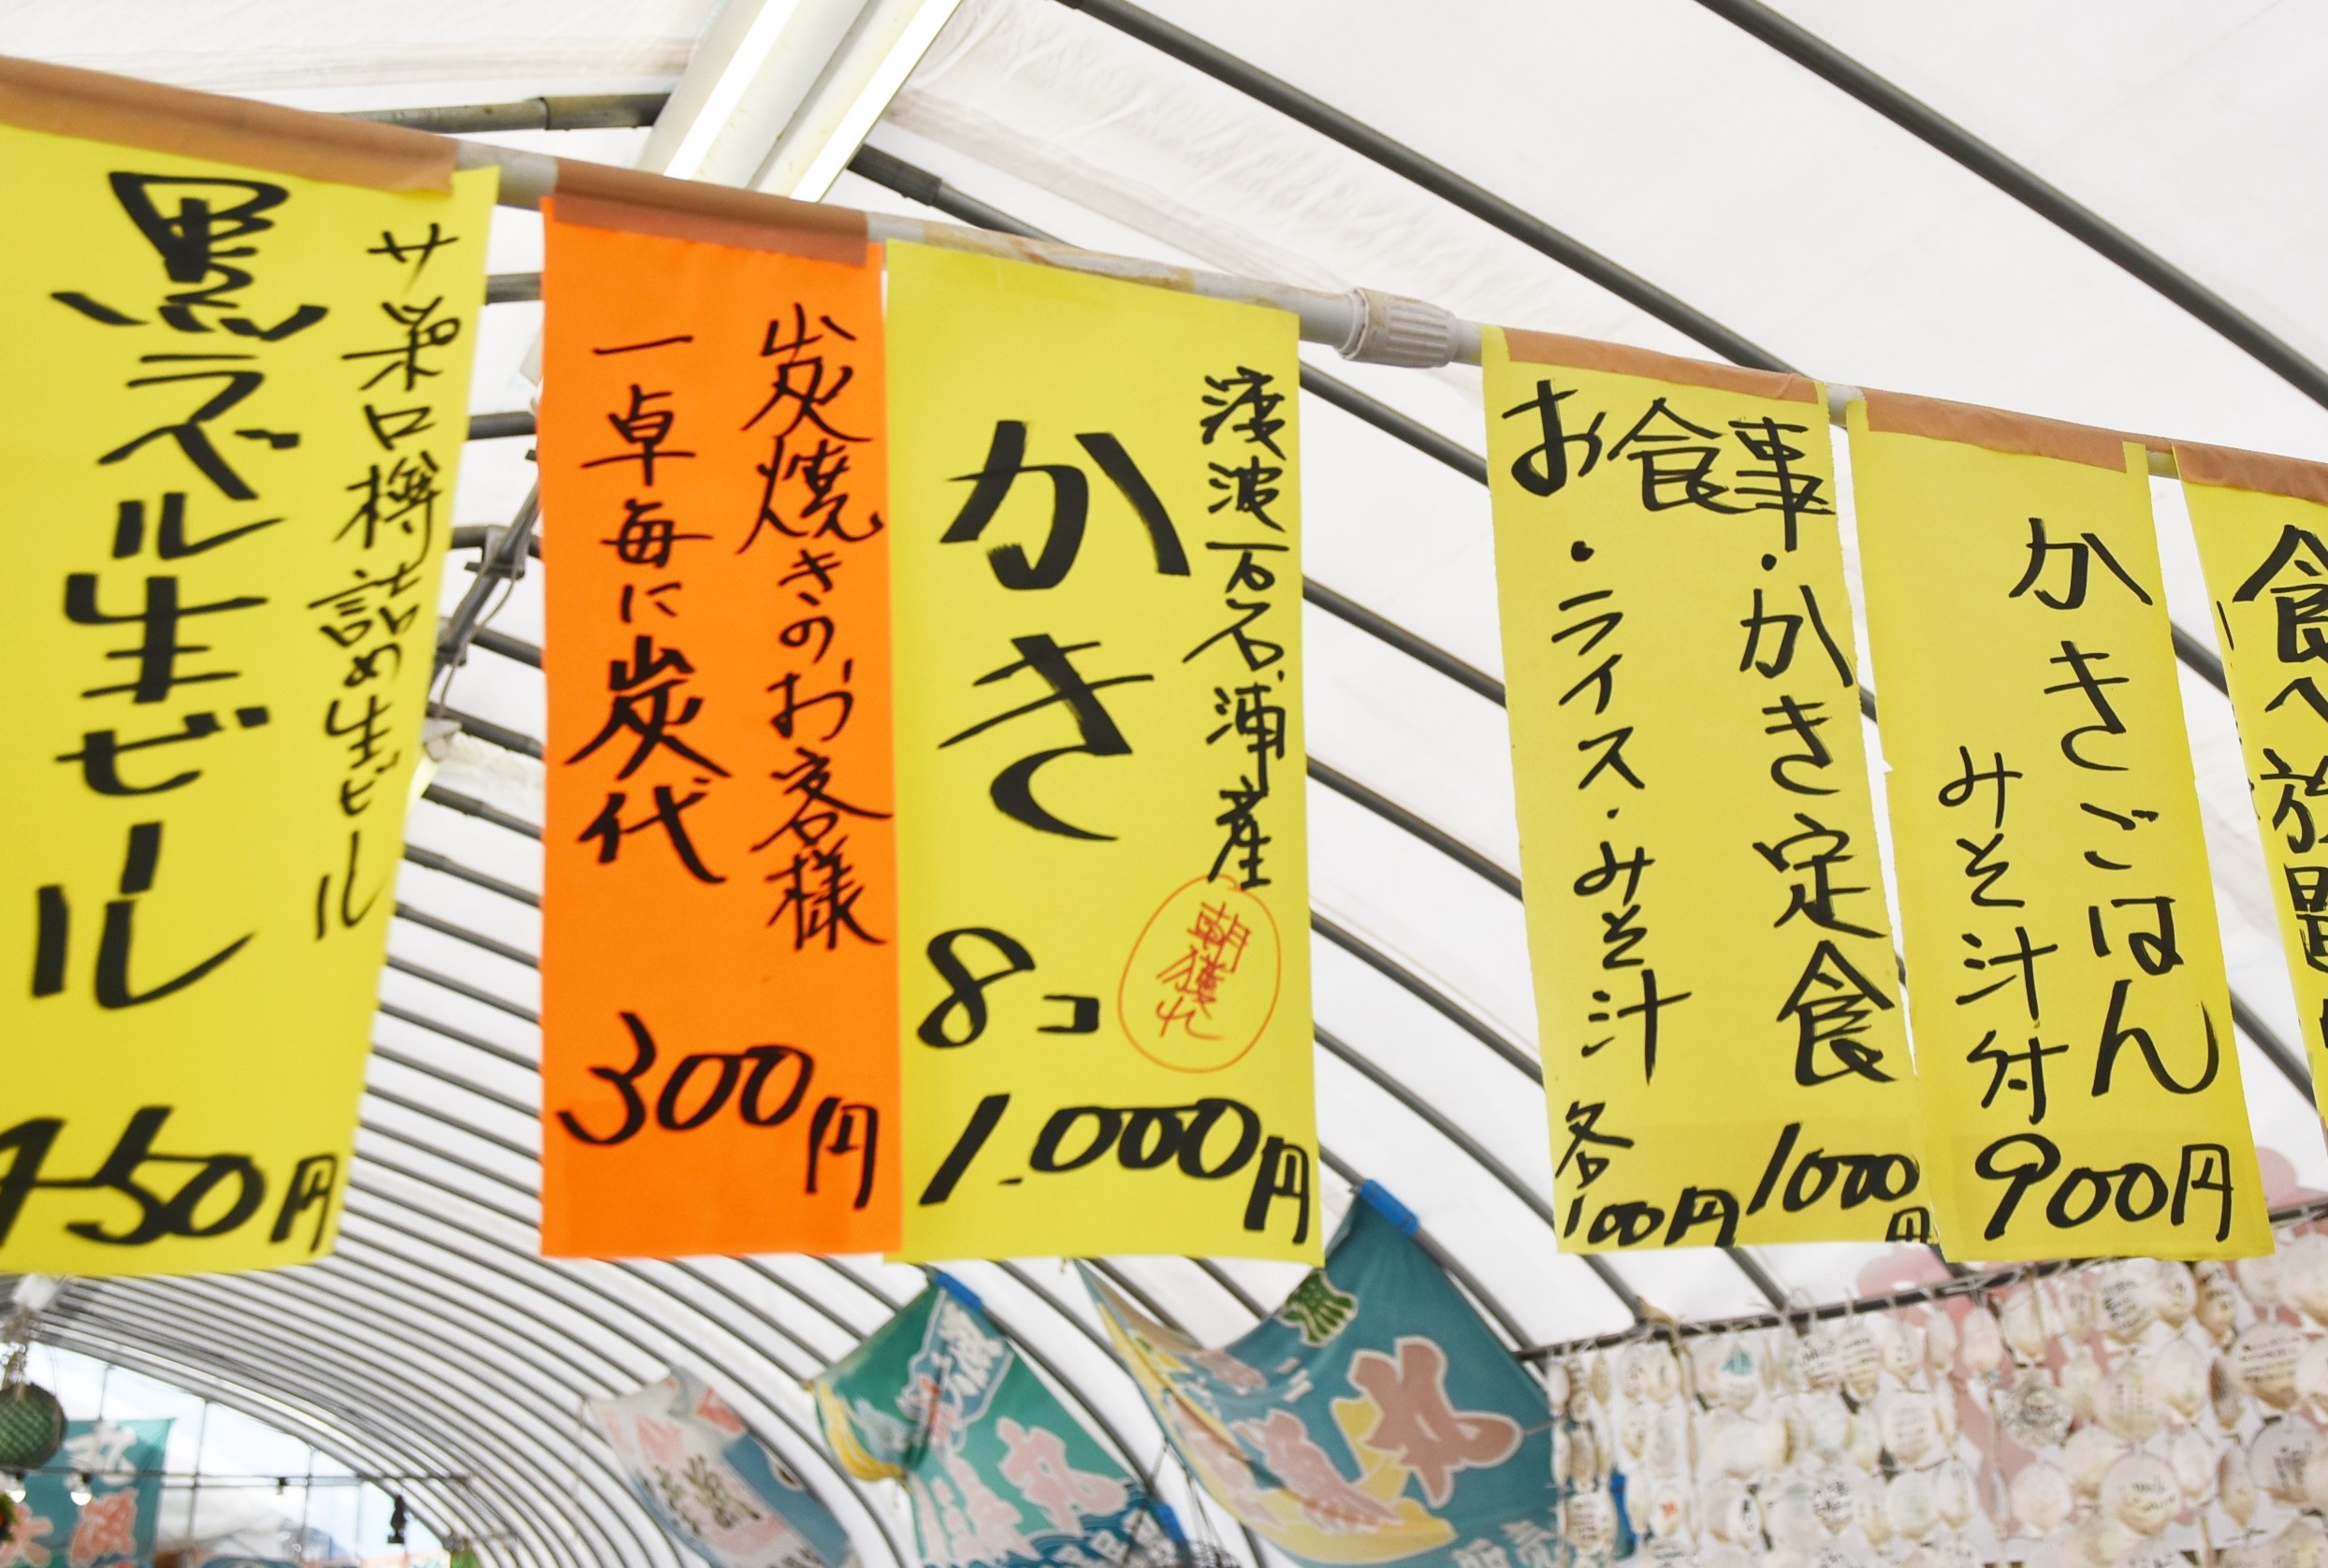 サッポロ樽詰め生ビール
黒ラベル生ビール
450円
炭焼きのお客様
一卓毎に炭代
300円
渡波万石浦産
朝獲れ
かき
8コ
1.000円
お食事
・かき定食 1000円
・ライス・みそ汁 各100円
かきごはん
みそ汁付
900円
食べ放題
丸
丸